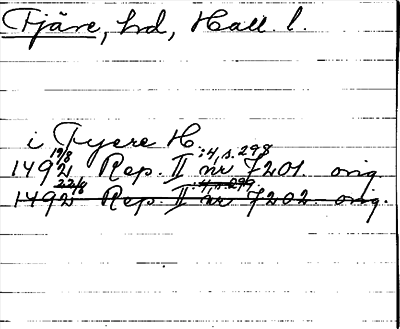 Fjäre, hd, Hall. l.
i Fyere H
1492 19/8 Rep. II nr 7201 :4, s. 298 orig.
1492 22/8 Rep. II nr 7202 :4, s. 299 orig.